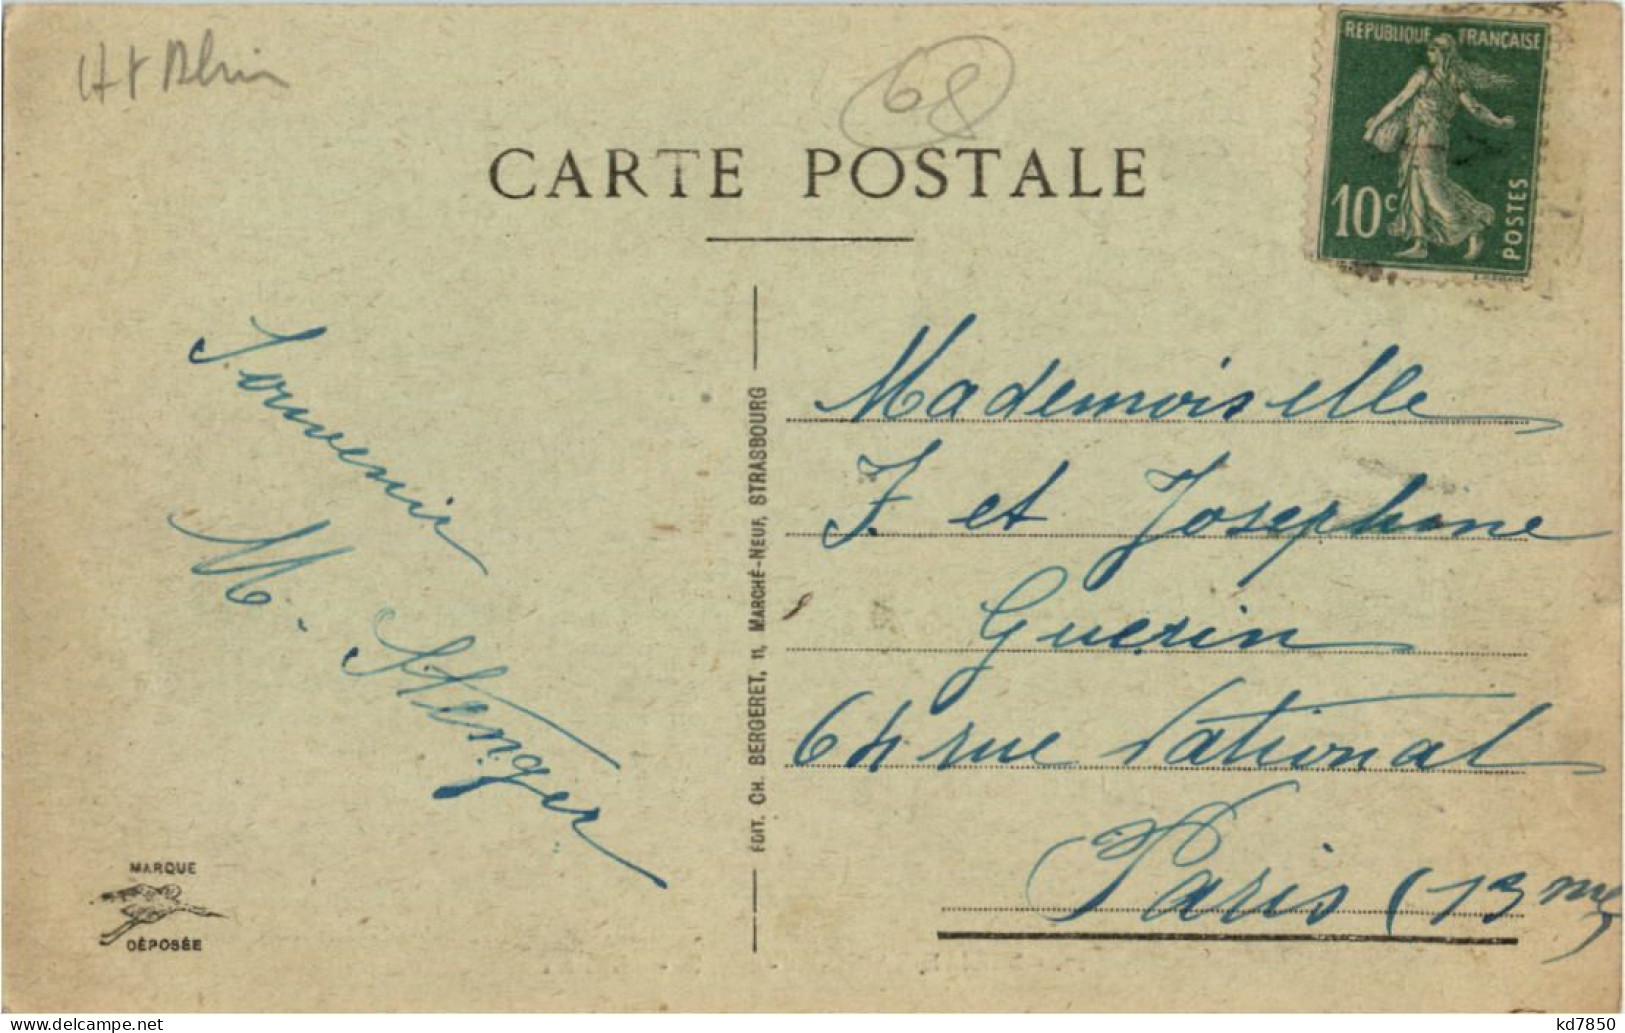 Ht Rhin
68
REPUBLIQUE FRANÇAISE
10c
POSTES
CARTE POSTALE
Souvenir
M. Stenger
ÉDIT. CH. BERGERET, 11, MARCHÉ-NEUF, STRASBOURG
Mademoiselle
F. et Josephine
Guerin
64 rue National
Paris (13me)
MARQUE
DÉPOSÉE
kd7850